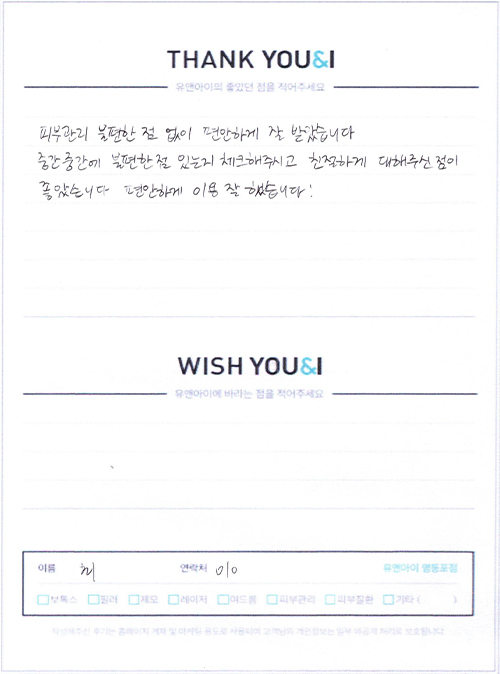 THANK YOU&I
유앤아이의 좋았던 점을 적어주세요
피부관리 불편한 점 없이 편안하게 잘 받았습니다
중간중간에 불편한점 있는지 체크해주시고 친절하게 대해주신 점이
좋았습니다 편안하게 이용 잘 했습니다!
WISH YOU&I
유앤아이에 바라는 점을 적어주세요
이름 최 연락처 010 유앤아이 영등포점
보톡스 필러 제모 레이저 여드름 피부관리 피부질환 기타 ( )
작성해주신 후기는 홈페이지 게재 및 마케팅 용도로 사용되며 고객님의 개인정보는 일부 비공개 처리로 보호됩니다